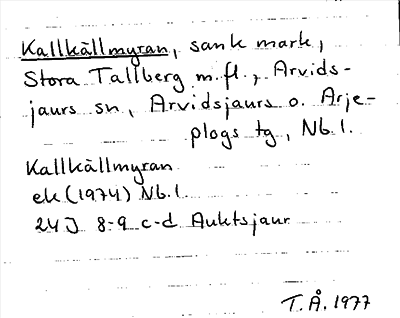 Kallkällmyran, sank mark,
Stora Tallberg m.fl., Arvids-
jaurs sn, Arvidsjaurs o. Arje-
plogs tg, Nb.l.
Kallkällmyran
ek (1974) Nb.l.
24J 8-9 c-d Auktsjaur
T.Å. 1977